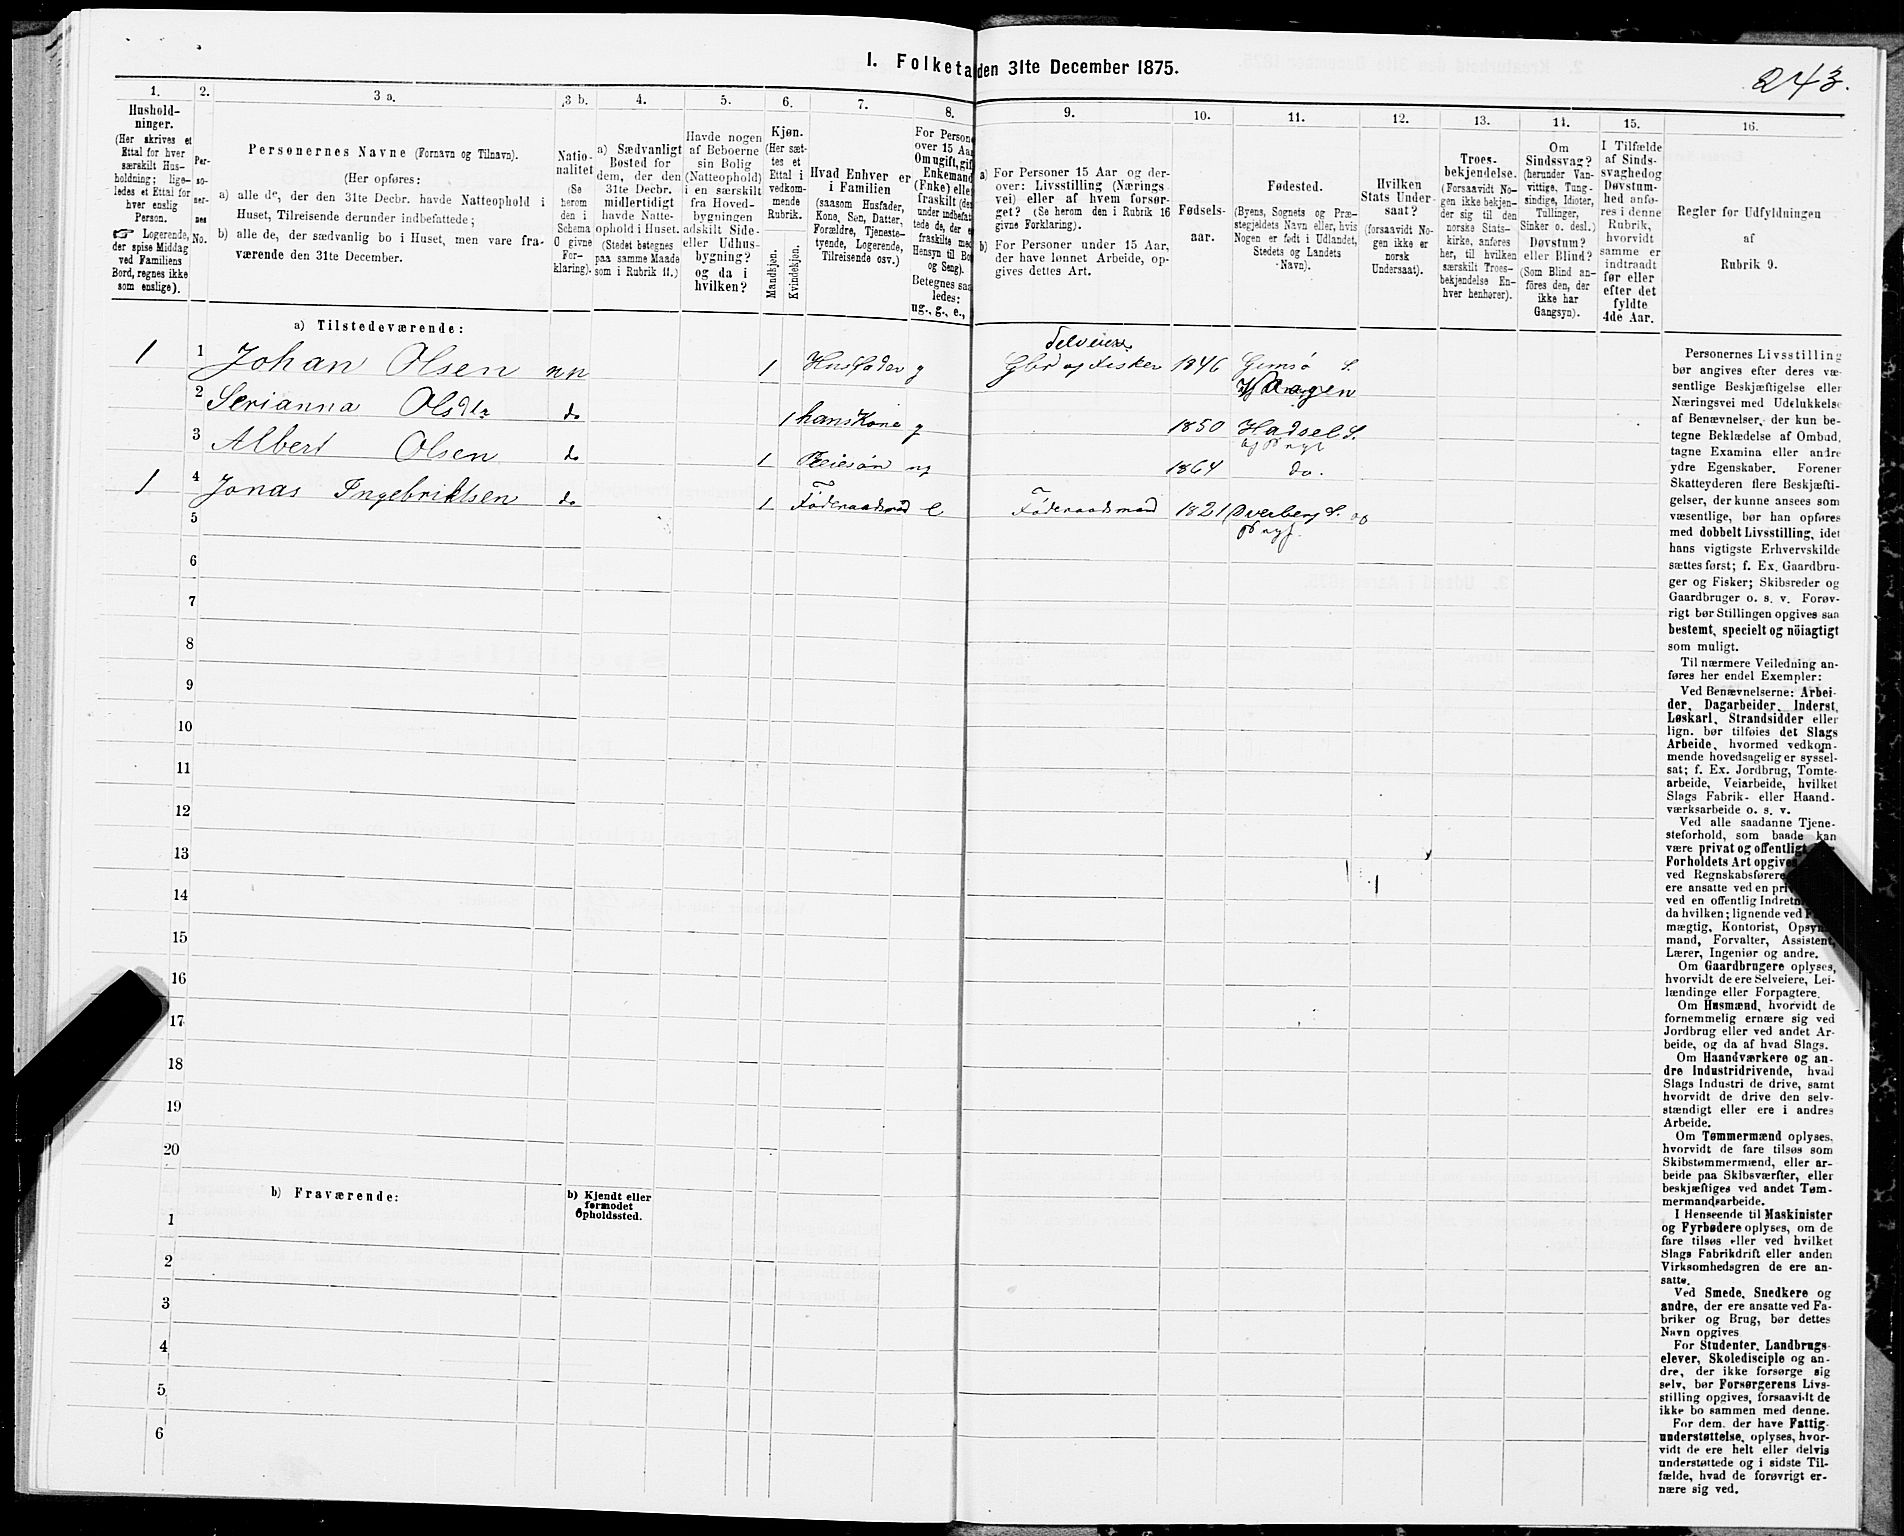 I. Folketa den 31te December 1875.
243.
1.
Hushold-
ninger.
(Her skrives et
Ettal for hver
særskilt Hus-
holdning; lige-
ledes et Ettal for
hver enslig
Person.
☞ Logerende,
der spise Middag
ved Familiens
Bord, regnes ikke
som enslige).
2.
Per-
so-
ner-
nes
No.
3 a.
Personernes Navne (Fornavn og Tilnavn).
(Her opføres:
a) alle de, der den 31te Decbr. havde Natteophold i
Huset, Tilreisende derunder indbefattede;
b) alle de, der sædvanlig bo i Huset, men vare fra-
værende den 31te December.
3 b.
Natio-
nalitet
(Se
herom
den i
Schema
O givne
For-
klaring).
4.
a) Sædvanligt
Bosted for
dem, der den
31te Decbr.
midlertidigt
havde Natte-
ophold i Huset.
(Stedet betegnes
paa samme Maade
som i Rubrik 11.)
5.
Havde nogen
af Beboerne
sin Bolig
(Natteophold)
i en særskilt
fra Hoved-
bygningen
adskilt Side-
eller Udhus-
bygning?
og da i
hvilken?
6.
Kjøn.
(Her sæt-
tes et
Ettal i
vedkom-
mende
Rubrik.
Mandkjøn.
Kvindekjøn.
7.
Hvad Enhver er
i Familien
(saasom Husfader,
Kone, Søn, Datter,
Forældre, Tjeneste-
tyende, Logerende,
Tilreisende osv.)
8.
For Persone
over 15 Aar
Om ugift, gif
Enkemand
(Enke) elle
fraskilt (de
under indbefat
tede de, der e
fraskilte med
Hensyn til Bo
og Seng).
Betegnes saa
ledes:
ug., g., e.,
9.
a) For Personer 15 Aar og der-
over: Livsstilling (Nærings-
vei) eller af hvem forsør-
get? (Se herom den i Rubrik 16
givne Forklaring).
b) For Personer under 15 Aar,
der have lønnet Arbeide, op-
gives dettes Art.
10.
Fødsels-
aar.
11.
Fødested.
(Byens, Sognets og Præ-
stegjeldets Navn eller, hvis
Nogen er født i Udlandet,
Stedets og Landets
Navn).
12.
Hvilken
Stats Under-
saat?
(forsaavidt No-
gen ikke er
norsk
Undersaat).
13.
Troes-
bekjendelse.
(Forsaavidt No-
gen ikke bekjen-
der sig til den
norske Stats-
kirke, anføres
her, til hvilken
særskilt Troes-
bekjendelse En-
hver henhører).
14.
Om
Sindssvag?
(herunder Van-
vittige, Tung-
sindige, Idioter,
Tullinger,
Sinker o. desl.)
Døvstum?
eller Blind?
(Som Blind an-
føres den, der
ikke har
Gangsyn).
15.
I Tilfælde
af Sinds-
svaghed og
Døvstum-
hed anfø-
res i denne
Rubrik,
hvorvidt
samme er
indtraadt
før eller
efter det
fyldte
4de Aar.
16.
Regler for Udfyldningen
af
Rubrik 9.
a) Tilstedeværende:
Selveier
1 1 Johan Olsen nn 1 Husfader g Gbr og Fisker 1846 Gimsø S.
Vaagen
2 Serianna Olsdtr do 1 hans Kone g 1850 Hadsel S.
og Prgj
3 Albert Olsen do 1 Pleiesøn ug 1864 do.
1 4 Jonas Ingebriktsen do 1 Føderaadsmd e Føderaadsmand 1821 Øverberg S. og
Prgj.
5
6
7
8
9
10
11
12
13
14
15
16
17
18
19
20
b) Fraværende:
b) Kjendt eller
formodet
Opholdssted.
1
2
3
4
5
6
Personernes Livsstilling
bør angives efter deres væ-
sentlige Beskjæftigelse eller
Næringsvei med Udelukkelse
af Benævnelser, der kun be-
tegne Beklædelse af Ombud,
tagne Examina eller andre
ydre Egenskaber. Forener
Skatteyderen flere Beskjæfti-
gelser, der kunne ansees som
væsentlige, bør han opføres
med dobbelt Livsstilling, idet
hans vigtigste Erhvervskilde
sættes først; f. Ex. Gaardbru-
ger og Fisker; Skibsreder og
Gaardbruger o. s. v. Forøv-
rigt bør Stillingen opgives saa
bestemt, specielt og nöiagtigt
som muligt.
Til nærmere Veiledning an-
føres her endel Exempler:
Ved Benævnelserne: Arbei-
der, Dagarbeider, Inderst,
Løskarl, Strandsidder eller
lign. bør tilføies det Slags
Arbeide, hvormed vedkom-
mende hovedsagelig er syssel-
sat; f. Ex. Jordbrug, Tomte-
arbeide, Veiarbeide, hvilket
Slags Fabrik- eller Haand-
værksarbeide o. s. v.
Ved alle saadanne Tjene-
steforhold, som baade kan
være privat og offentligt,
Forholdets Art opgives
ved Regnskabsførere,
ere ansatte ved en pri
ved en offentlig Indretn
da hvilken; lignende ved F
mægtig, Kontorist, Opsyns
mand, Forvalter, Assistent,
Lærer, Ingeniør og andre.
Om Gaardbrugere oplyses,
hvorvidt de ere Selveiere, Lei-
lændinge eller Forpagtere.
Om Husmænd, hvorvidt de
fornemmelig ernære sig ved
Jordbrug eller ved andet Ar-
beide, og da af hvad Slags.
Om Haandværkere og an-
dre Industridrivende, hvad
Slags Industri de drive, samt
hvorvidt de drive den selv-
stændigt eller ere i andres
Arbeide.
Om Tømmermænd oplyses,
hvorvidt de fare tilsøs som
Skibstømmermænd, eller ar-
beide paa Skibsværfter, eller
beskjæftiges ved andet Tøm-
mermandsarbeide.
I Henseende til Maskinister
og Fyrbødere oplyses, om de
fare tilsøs eller ved hvilket
Slags Fabrikdrift eller anden
Virksomhedsgren de ere an-
satte.
Ved Smede, Snedkere og
andre, der ere ansatte ved Fa-
briker og Brug, bør dettes
Navn opgives
For Studenter, Landbrugs-
elever, Skoledisciple og an-
dre, der ikke forsørge sig
selv, bør Forsørgerens Livs-
stilling opgives, forsaavidt de
ikke bo sammen med denne.
For dem, der have Fattig-
understøttelse, oplyses, hvor-
vidt de ere helt eller delvis
understøttede og i sidste Til-
fælde, hvad de forøvrigt er-
nære sig ved.